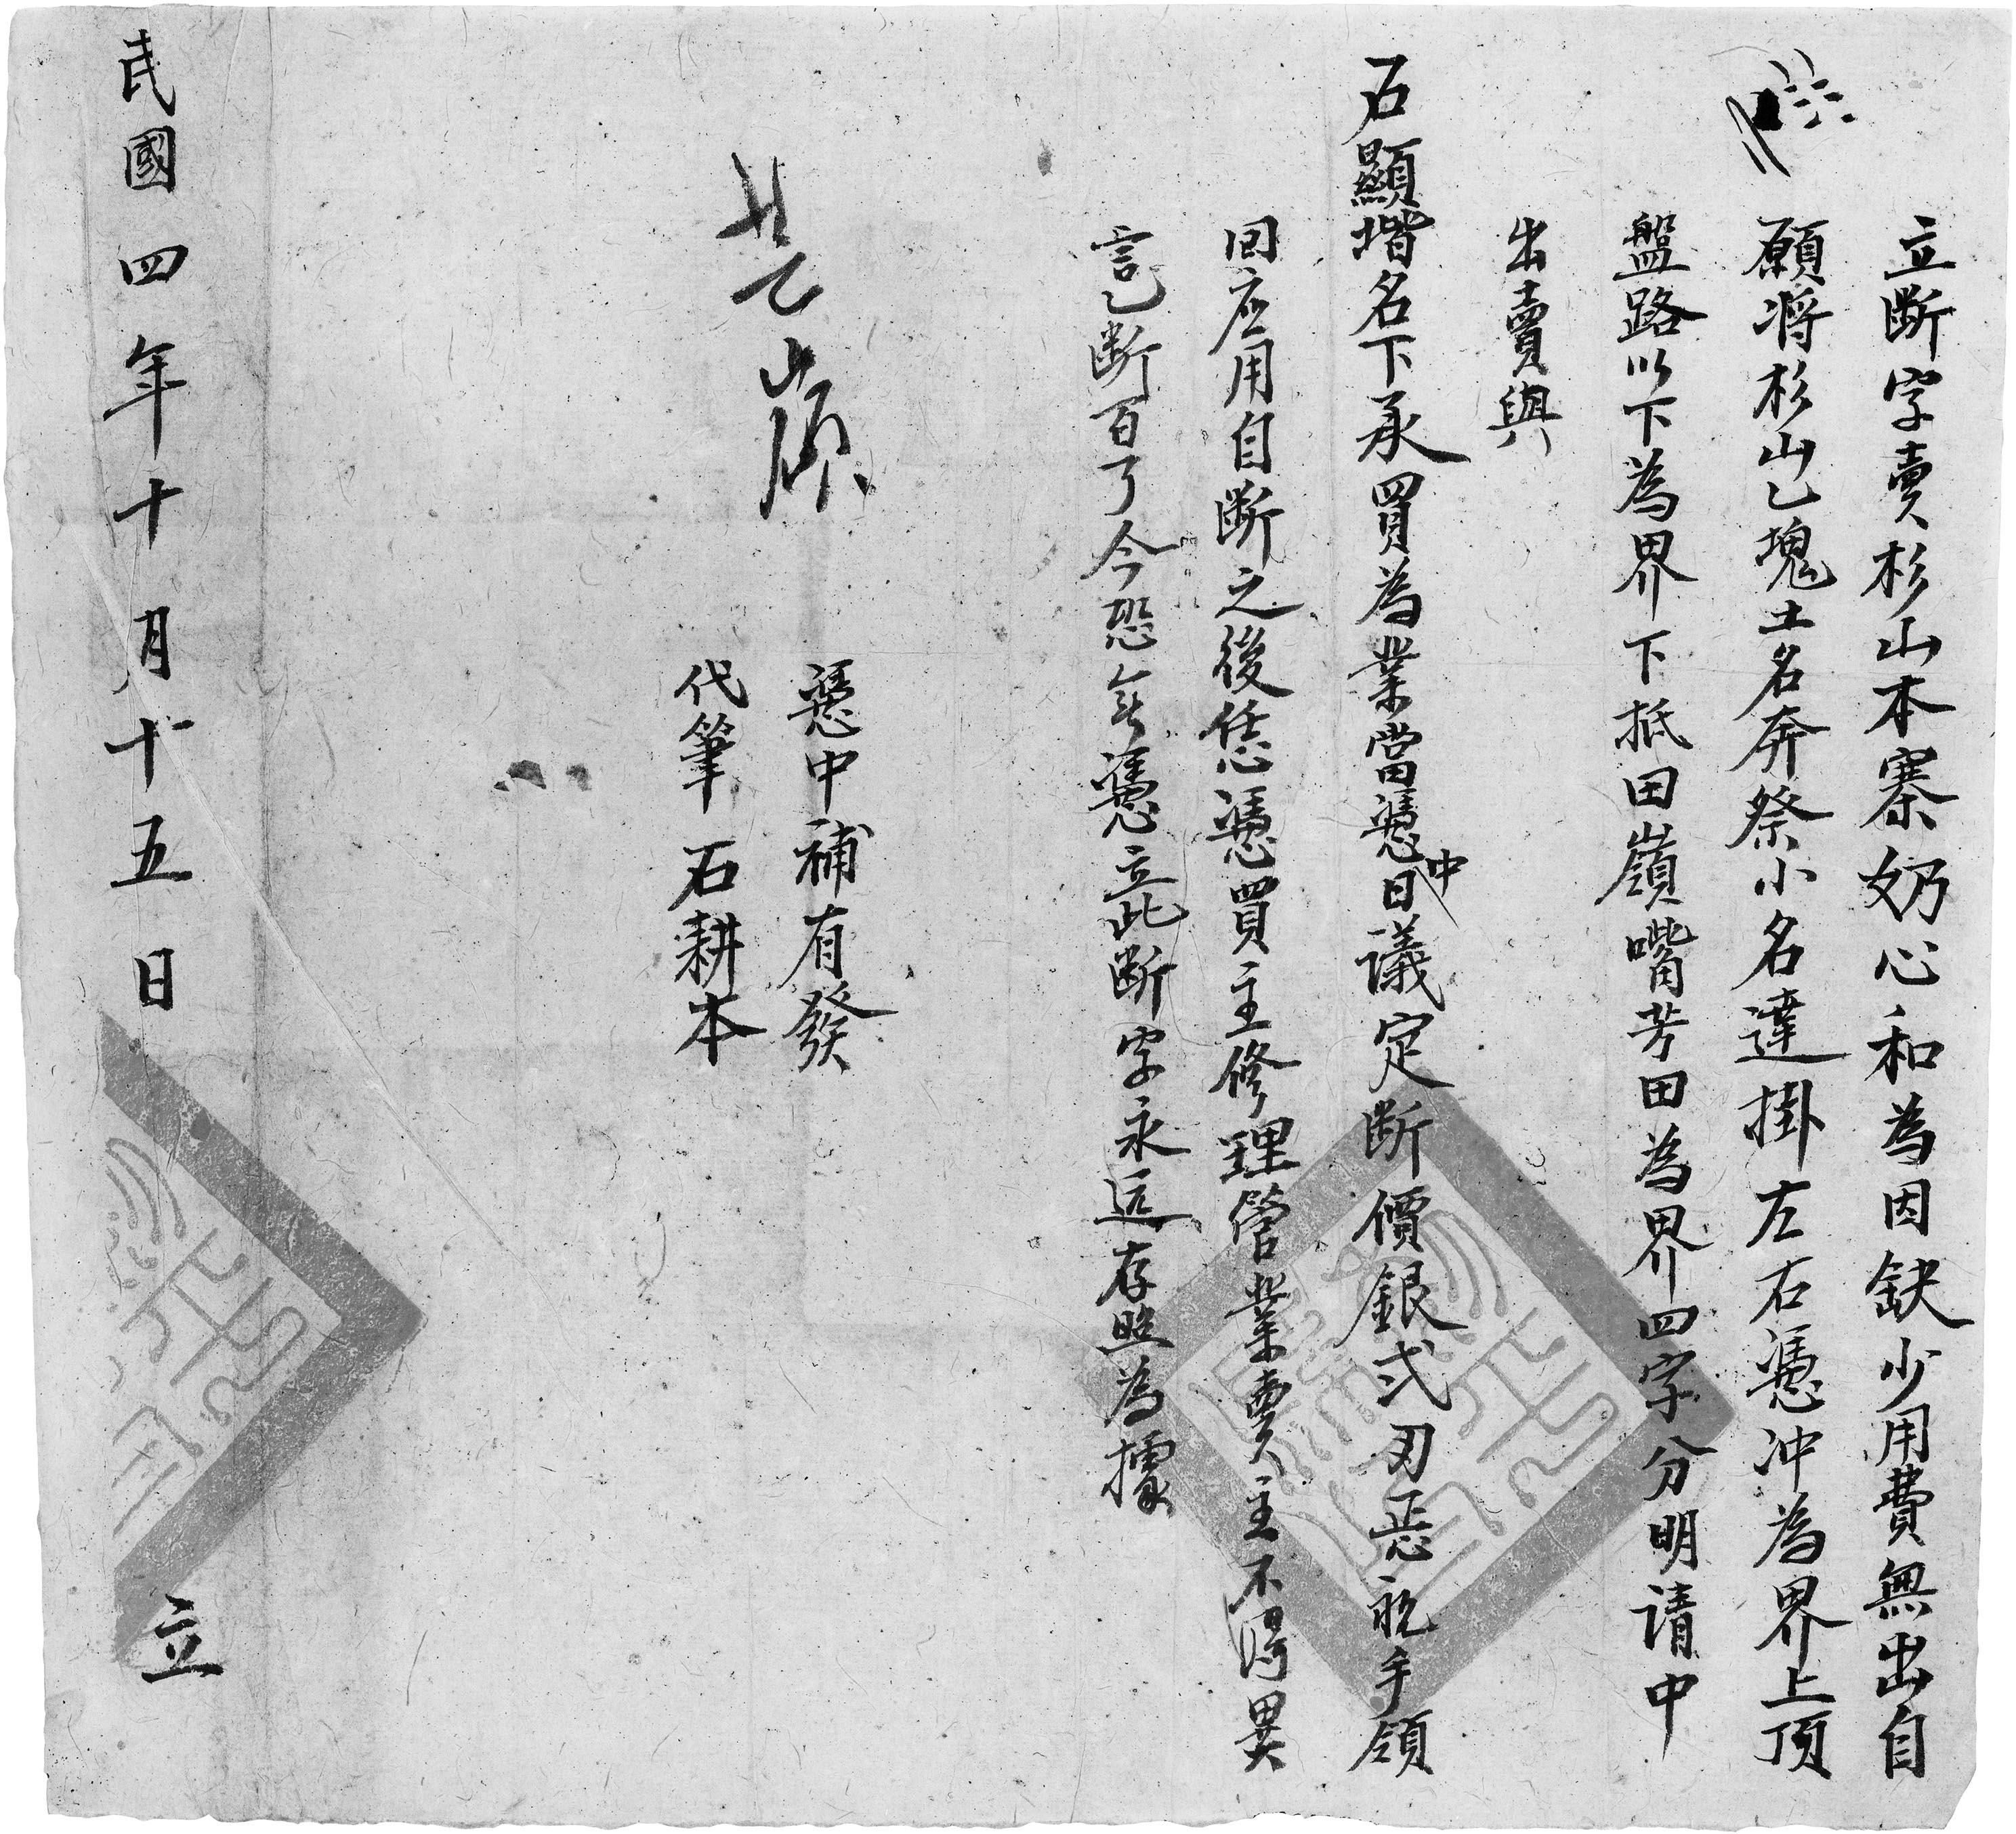 立断字賣杉山本寨奶心和為因缺少用費無出自
願将杉山乙塊土名奔祭小名達掛左右憑冲為界上頂
盤路以下為界下抵田嶺嘴芳田為界四字分明請中
出賣與
石顯堦名下承買為業當憑中日議定断價銀弍刃惡親手領
囬应用自断之後恁憑買主修理營業賣主不得異
言乙断百了今恐無憑立此断字永遠存照為據
憑中補有發
代筆石耕本
民國四年十月十五日立